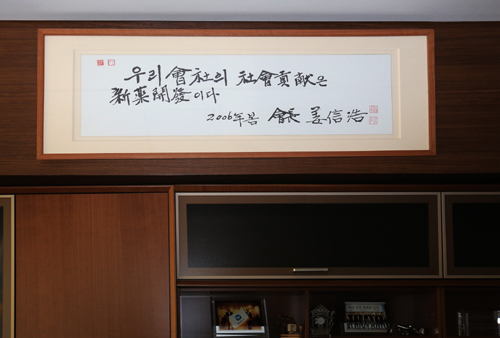 우리 會社의 社會貢献은
新薬開發이다
2006年봄 會長 姜信浩